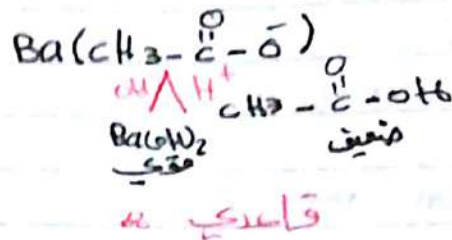 Ba(CH3-C-O⁻)
O
OH H⁺
O
CH3-C-OH
Ba(OH)2
قوي
ضعيف
قاعدي